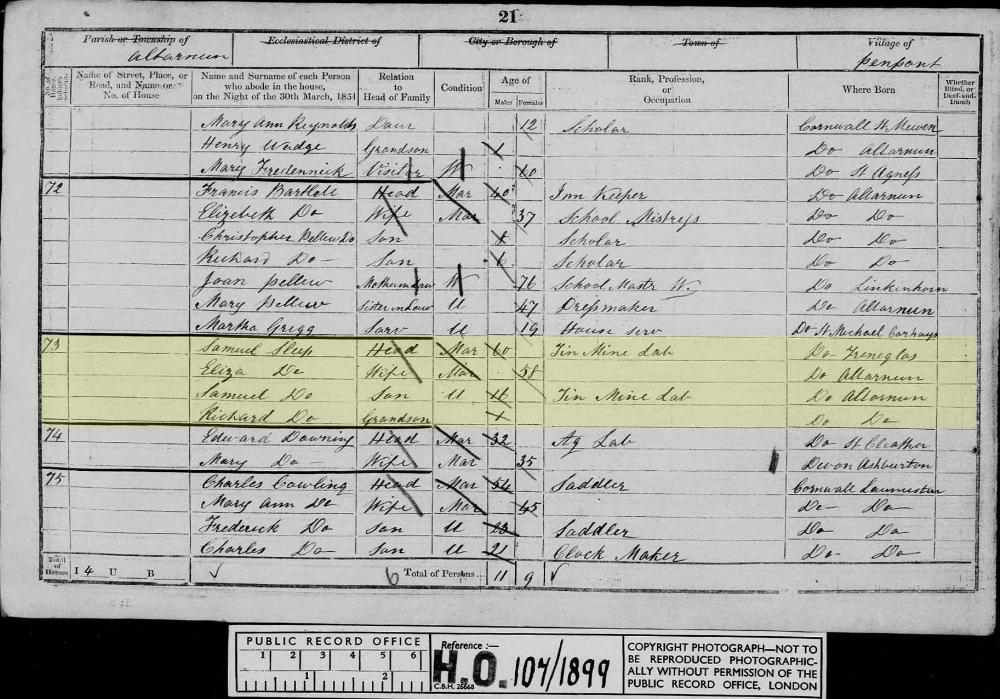 21
Parish or Township of Ecclesiastical District of City or Borough of Town of Village of
Altarnun penpont
No. of Householder's Schedule Name of Street, Place, or Road, and Name or No. of House Name and Surname of each Person who abode in the house, on the Night of the 30th March, 1851 Relation to Head of Family Condition Age of Males Females Rank, Profession, or Occupation Where Born Whether Blind, or Deaf-and-Dumb
Mary Ann Reynolds Daur 12 Scholar Cornwall St Mewen
Henry Wadge Grandson Do Altarnun
Mary Fredennick Visitor W 60 Do St Agness
72 Francis Bartlett Head Mar 40 Inn Keeper Do Altarnun
Elizebeth Do Wife Mar 37 School Mistress Do Do
Christopher Pellew Do Son Scholar Do Do
Richard Do Son Scholar Do Do
Joan Pellew Mother in Law W 76 School Mastr W Do Linkenhorn
Mary Pellew Sister in Law U 47 Dressmaker Do Altarnun
Martha Gregg Serv U 19 House Serv Do St Michael Carhays
73 Samuel Sleep Head Mar 60 Tin Mine Lab Do Treneglos
Eliza Do Wife Mar 58 Do Altarnun
Samuel Do Son U 16 Tin Mine Lab Do Altarnun
Richard Do Grandson Do Do
74 Edward Downing Head Mar 32 Ag Lab Do St Cleather
Mary Do Wife Mar 35 Devon Ashburton
75 Charles Cowling Head Mar 54 Saddler Cornwall Launceston
Mary Ann Do Wife Mar 45 Do Do
Frederick Do Son U 23 Saddler Do Do
Charles Do Son U 21 Clock Maker Do Do
Total of Houses I 4 U B 6 Total of Persons 11 9
PUBLIC RECORD OFFICE
1 2 3 4 5 6
1 2
Reference :—
H.O. 107/1899
C.B.H. 26668
COPYRIGHT PHOTOGRAPH—NOT TO
BE REPRODUCED PHOTOGRAPHIC-
ALLY WITHOUT PERMISSION OF THE
PUBLIC RECORD OFFICE, LONDON